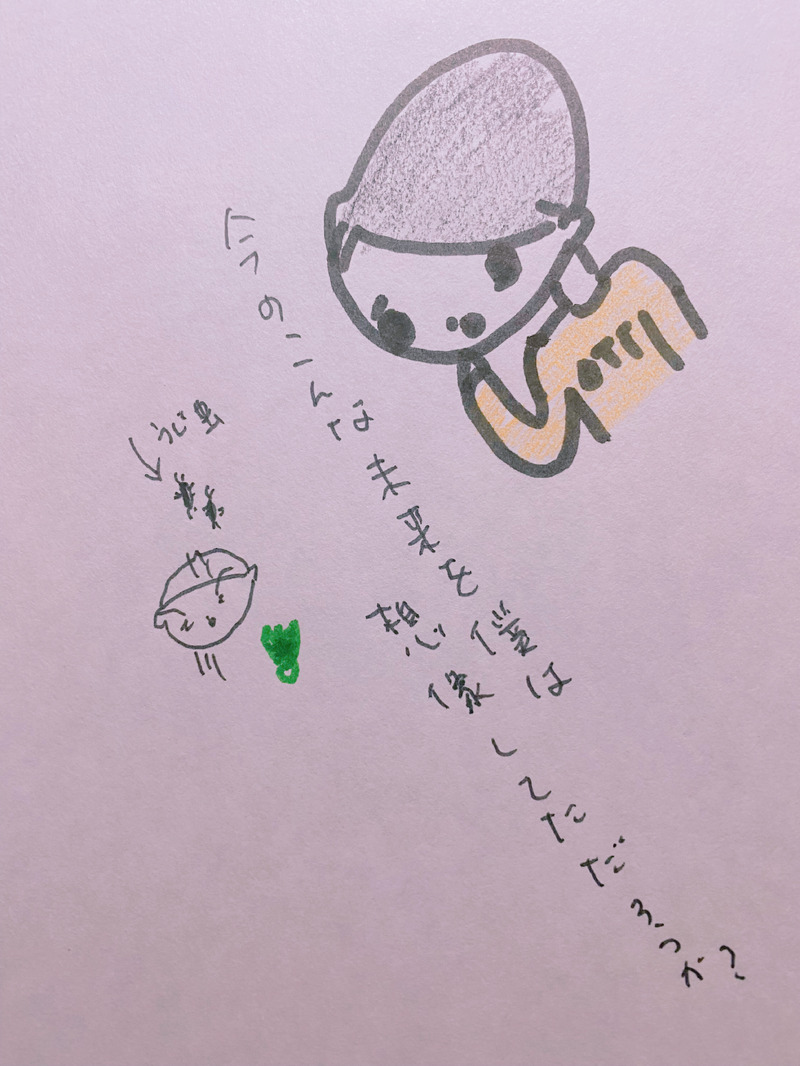 今のこんな未来を僕は
想像してただろうか?
うじ虫